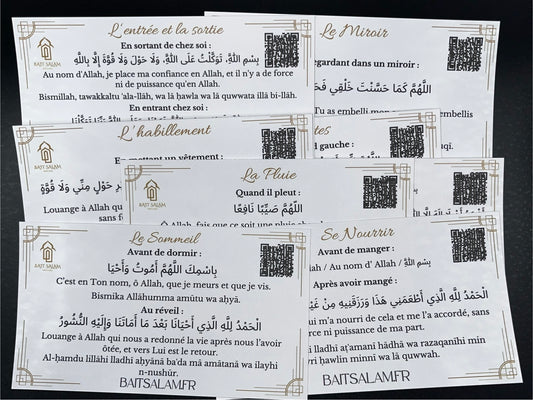 L'entrée et la sortie
En sortant de chez soi :
بِسْمِ اللَّهِ، تَوَكَّلْتُ عَلَى اللَّهِ، وَلَا حَوْلَ وَلَا قُوَّةَ إِلَّا بِاللَّهِ
Au nom d'Allah, je place ma confiance en Allah, et il n'y a de force
ni de puissance qu'en Allah.
Bismillah, tawakkaltu 'ala-llâh, wa lâ ḥawla wa lâ quwwata illâ bi-llâh.
En entrant chez soi :
BAIT SALAM
Le Miroir
egardant dans un miroir :
اللَّهُمَّ كَمَا حَسَّنْتَ خَلْقِي فَحَ
Tu as embelli mon
embellis
uqi.
L'habillement
En mettant un vêtement :
رِ حَوْلٍ مِنِّي وَلَا قُوَّةٍ
Louange à Allah qu
sans fo
BAIT SALAM
tes
d gauche :
La Pluie
Quand il pleut :
اللَّهُمَّ صَيِّبًا نَافِعًا
Ô Allah, fais que ce soit une pluie
Le Sommeil
BAIT SALAM
Avant de dormir :
بِاسْمِكَ اللَّهُمَّ أَمُوتُ وَأَحْيَا
C'est en Ton nom, ô Allah, que je meurs et que je vis.
Bismika Allâhumma amûtu wa aḥya.
Au réveil :
الْحَمْدُ لِلَّهِ الَّذِي أَحْيَانَا بَعْدَ مَا أَمَاتَنَا وَإِلَيْهِ النُّشُورُ
Louange à Allah qui nous a redonné la vie après nous l'avoir
ôtée, et vers Lui est le retour.
Al-ḥamdu lillâhi lladhi aḥyânâ ba'da mâ amâtanâ wa ilayhi
n-nushûr.
BAITSALAM.FR
Se Nourrir
Avant de manger :
iah / Au nom d' Allah / بِسْمِ اللَّهِ
Après avoir mangé :
الْحَمْدُ لِلَّهِ الَّذِي أَطْعَمَنِي هَذَا وَرَزَقَنِيهِ مِنْ غَيْ
ui m'a nourri de cela et me l'a accordé, sans
rce ni puissance de ma part.
i lladhi aṭ'amani hâdhâ wa razaqanîhi min
yri ḥawlin minnî wa lâ quwwah.
BAITSALAM.FR